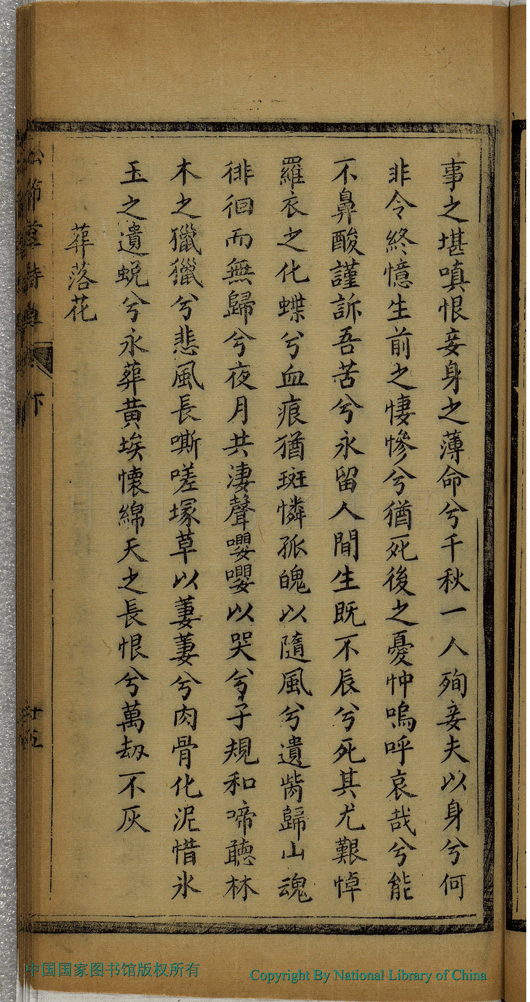 事之堪嗔恨妾身之薄命兮千秋一人殉妾夫以身兮何
非令終憶生前之悽慘兮猶死後之憂忡嗚呼哀哉兮能
不鼻酸謹訴吾苦兮永留人間生既不辰兮死其尤艱悼
羅衣之化蝶兮血痕猶斑憐孤魄以隨風兮遺胔歸山魂
徘徊而無歸兮夜月共淒聲嚶嚶以哭兮子規和啼聽林
木之獵獵兮悲風長嘶嗟塚草以萋萋兮肉骨化泥惜氷
玉之遺蛻兮永葬黄埃懷綿天之長恨兮萬劫不灰
葬落花
十五
中国国家图书馆版权所有
Copyright By National Library of China